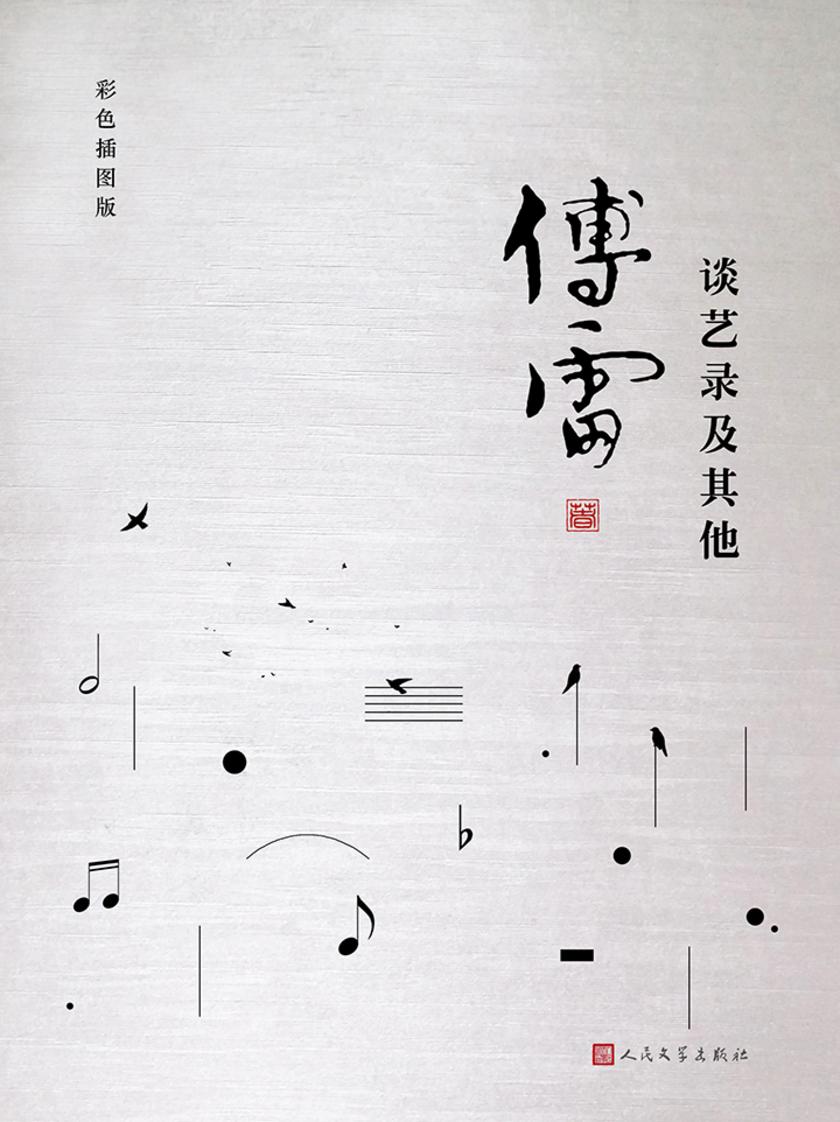 彩色插图版
傅雷
谈艺录及其他
著
人民文学出版社